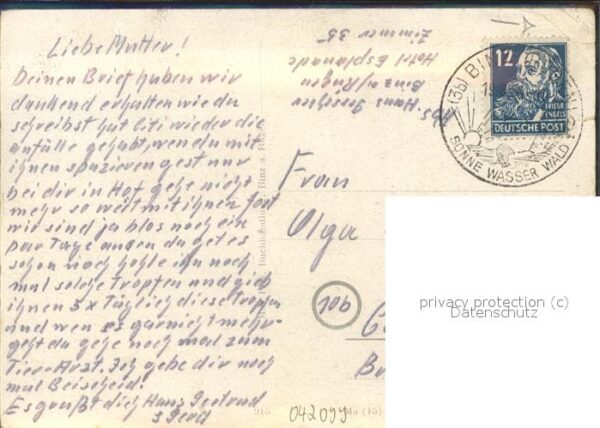 Liebe Mutter!
Deinen Brief haben wir
dankend erhalten wie du
schreibst hat Citi wieder die
anfälle gehabt, wen du mit
ihnen spazieren gest nur
bei dir in Hof gehe nicht
mehr so weit mit ihnen fort
wir sind ja blos noch ein
par Tage da get es
schon noch hohle ihn noch
mal solche Tropfen und gieb
ihnen 5 x Täglich diese Tropfen
und wen es garnicht mehr
geht da gehe noch mal zum
Tier-Arzt. Ich gebe dir noch
mal Beischeid!
Es grüßt dich Hans Gertrud
Abs
Hans
Binz a/Rügen
Hotel Esplanade
Zimmer 35
(3b) BINZ
SONNE WASSER WALD
12
FRIEDR
ENGELS
DEUTSCHE POST
Frau
Olga
10b
privacy protection (c)
Datenschutz
042099